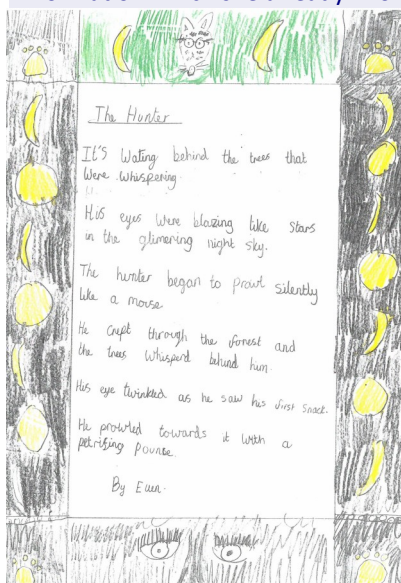 The Hunter
IT'S Wating behind the trees that
Were Whispering.
His eyes Were blazing like stars
in the glimering night sky.
The hunter began to prowl silently
like a mouse
He crept through the forest and
the trees Whisperd behind him.
His eye twinkled as he saw his first snack.
He prowled towards it with a
petrifing pounce.
By Euen.